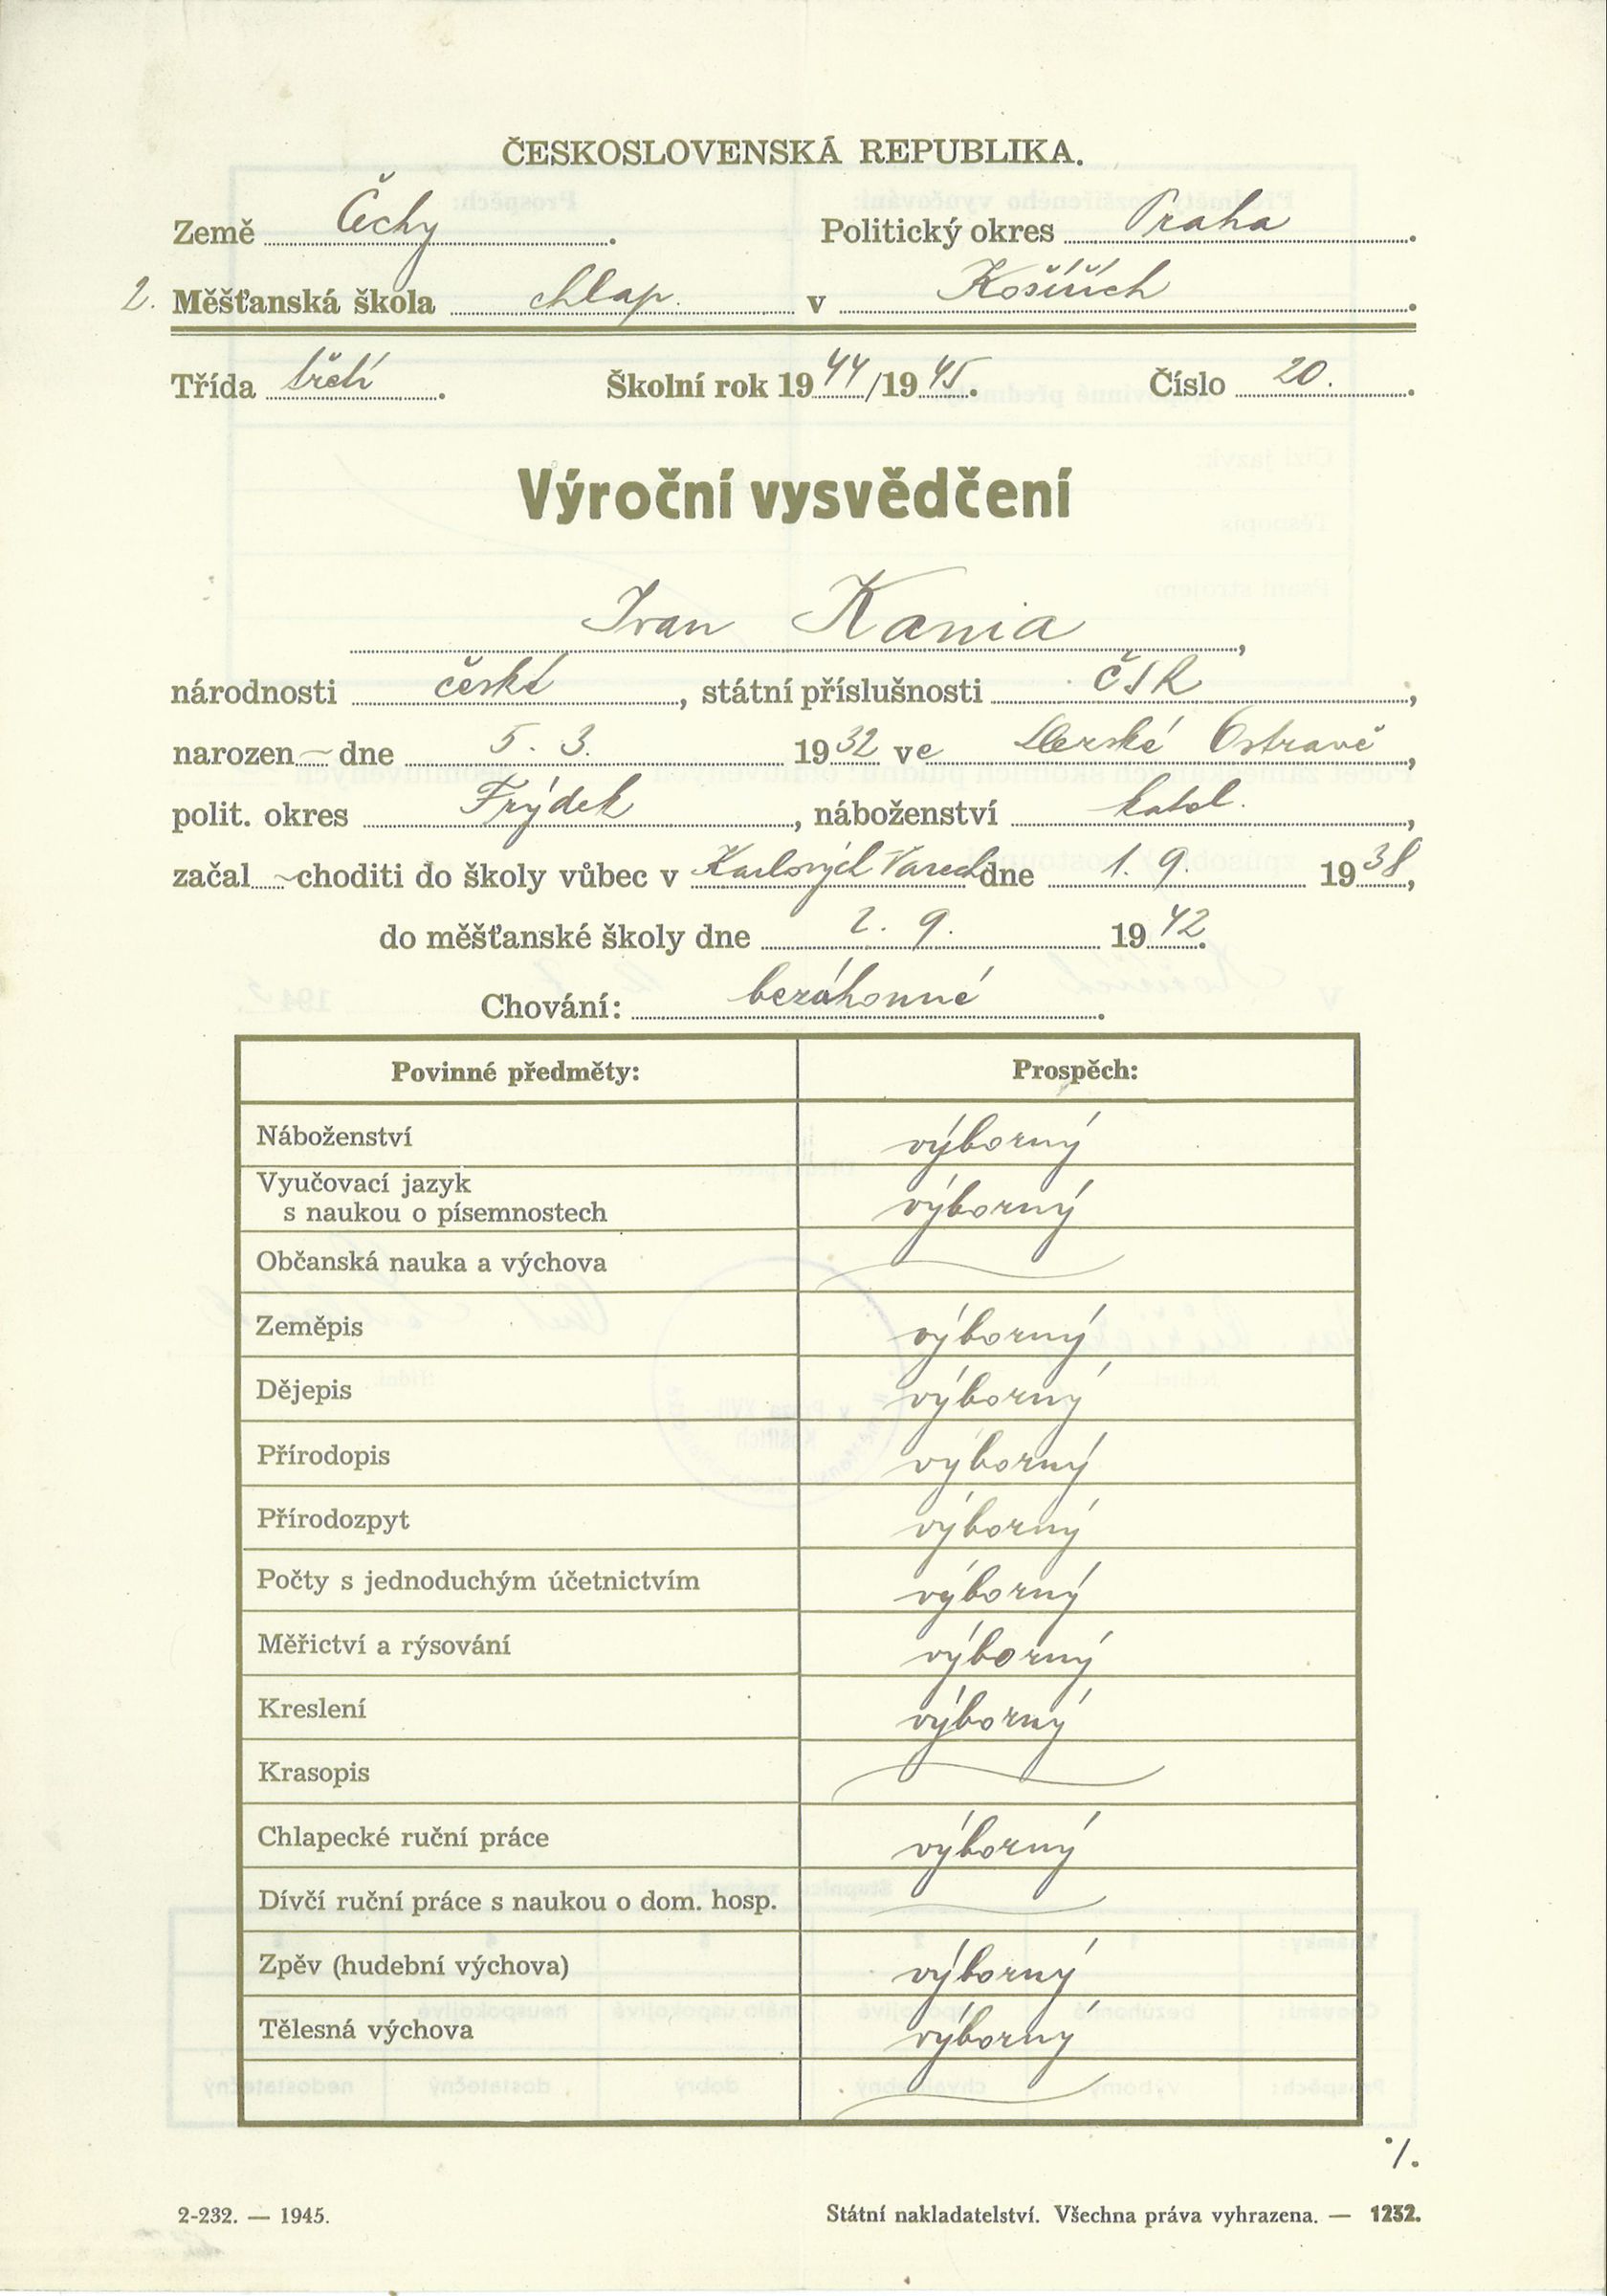 ČESKOSLOVENSKÁ REPUBLIKA.
Země Čechy. Politický okres Praha.
2. Měšťanská škola chlap. v Košířích.
Třída třetí. Školní rok 1944/1945. Číslo 20.
Výroční vysvědčení
Ivan Kania,
národnosti české, státní příslušnosti ČSR,
narozen ~ dne 5. 3. 1932 ve Slezské Ostravě,
polit. okres Frýdek, náboženství katol.,
začal ~ choditi do školy vůbec v Karlových Varech dne 1. 9. 1938,
do měšťanské školy dne 2. 9. 1942.
Chování: bezúhonné.
Povinné předměty: Prospěch:
Náboženství výborný
Vyučovací jazyk
s naukou o písemnostech výborný
Občanská nauka a výchova
Zeměpis výborný
Dějepis výborný
Přírodopis výborný
Přírodozpyt výborný
Počty s jednoduchým účetnictvím výborný
Měřictví a rýsování výborný
Kreslení výborný
Krasopis
Chlapecké ruční práce výborný
Dívčí ruční práce s naukou o dom. hosp.
Zpěv (hudební výchova) výborný
Tělesná výchova výborný
·/.
2-232. — 1945. Státní nakladatelství. Všechna práva vyhrazena. — 1232.